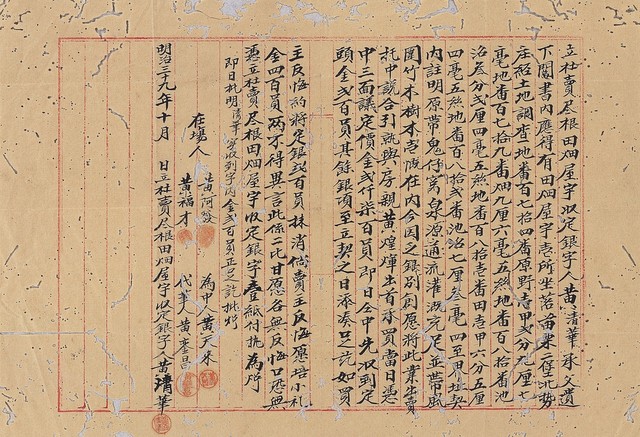 立杜賣尽根田畑屋宇收定銀字人黃清華承父遺
下鬮書內應得有田畑屋宇壹所坐落苗栗一堡北勢
庄經土地調查地番百七拾四番原野壹甲弍分九厘七
毫地番百七拾九番畑九厘六毫五絲地番百八拾番池
沼叁分弍厘四毫五絲地番百八拾壹番田壹甲六分五厘
四毫五絲地番百八拾弍番池沼七厘叁毫四至甲址契
內註明原帶鬼仔窩泉源通流灌溉充足並帶風
圍竹木樹木壹段在內今因乏銀別創愿將此業出賣
托中說合引就與房親黃煌燁出首承買當日憑
中三面議定價金弍仟柒百員即日仝中先收到定
頭金弍百員其餘銀項至立契之日添湊足訖如買
主反悔約將定銀弍百員抹消倘賣主反悔愿培小礼
金四百員兩才得異言此係二比甘愿各無反悔口恐無
憑立杜賣尽根田畑屋宇收定銀字壹紙付执為炤
即日批明清華實收到字內金弍百員正足訖批炤
為中人黃天來
在場人黃阿發
黃福才
代筆人黃奎昌
明治三十九年十月 日立杜賣尽根田畑屋宇收定銀字人黃清華